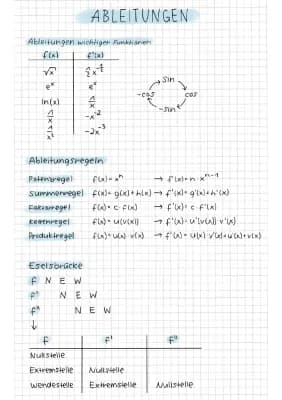 ABLEITUNGEN
Ableitungen wichtiger Funktionen
f(x) f'(x)
√x ½x^-½
e^x e^x
ln(x) 1/x
1/x -x^-2
1/x² -2x^-3
sin
-cos cos
-sin
Ableitungsregeln
Potenzregel f(x)=x^n → f'(x)=n·x^n-1
Summenregel f(x)=g(x)+h(x) → f'(x)=g'(x)+h'(x)
Faktorregel f(x)=c·f(x) → f'(x)=c·f'(x)
Kettenregel f(x)=u(v(x)) → f'(x)=u'(v(x))·v'(x)
Produktregel f(x)=u(x)·v(x) → f'(x)=u(x)·v'(x)+u'(x)·v(x)
Eselsbrücke
f N E W
f' N E W
f" N E W
↓
f f' f"
Nullstelle
Extremstelle Nullstelle
Wendestelle Extremstelle Nullstelle